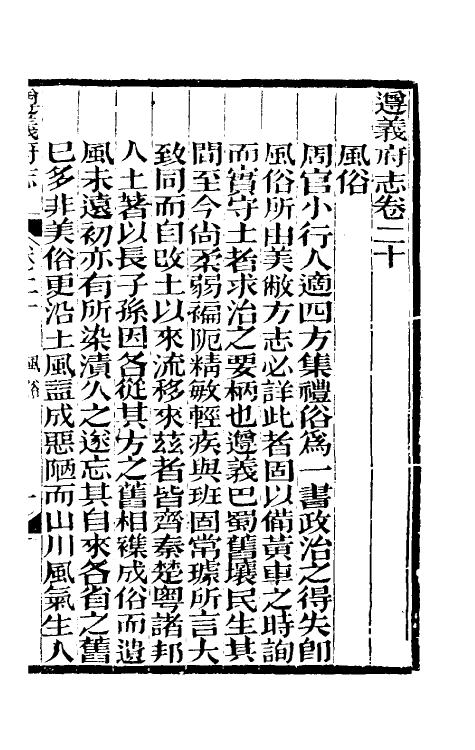 遵義府志卷二十
風俗
周官小行人適四方集禮俗爲一書政治之得失卽
風俗所由美敝方志必詳此者固以備黃車之時詢
而實守土者求治之要柄也遵義巴蜀舊壤民生其
間至今尙柔弱褊阨精敏輕疾與班固常璩所言大
致同而自改土以來流移來茲者皆齊秦楚粵諸邦
人土著以長子孫因各從其方之舊相襍成俗而遺
風未遠初亦有所染漬久之遂忘其自來各省之舊
已多非美俗更沿土風諡成惡陋而山川風氣生人
遵義府志 卷二十 風俗 一